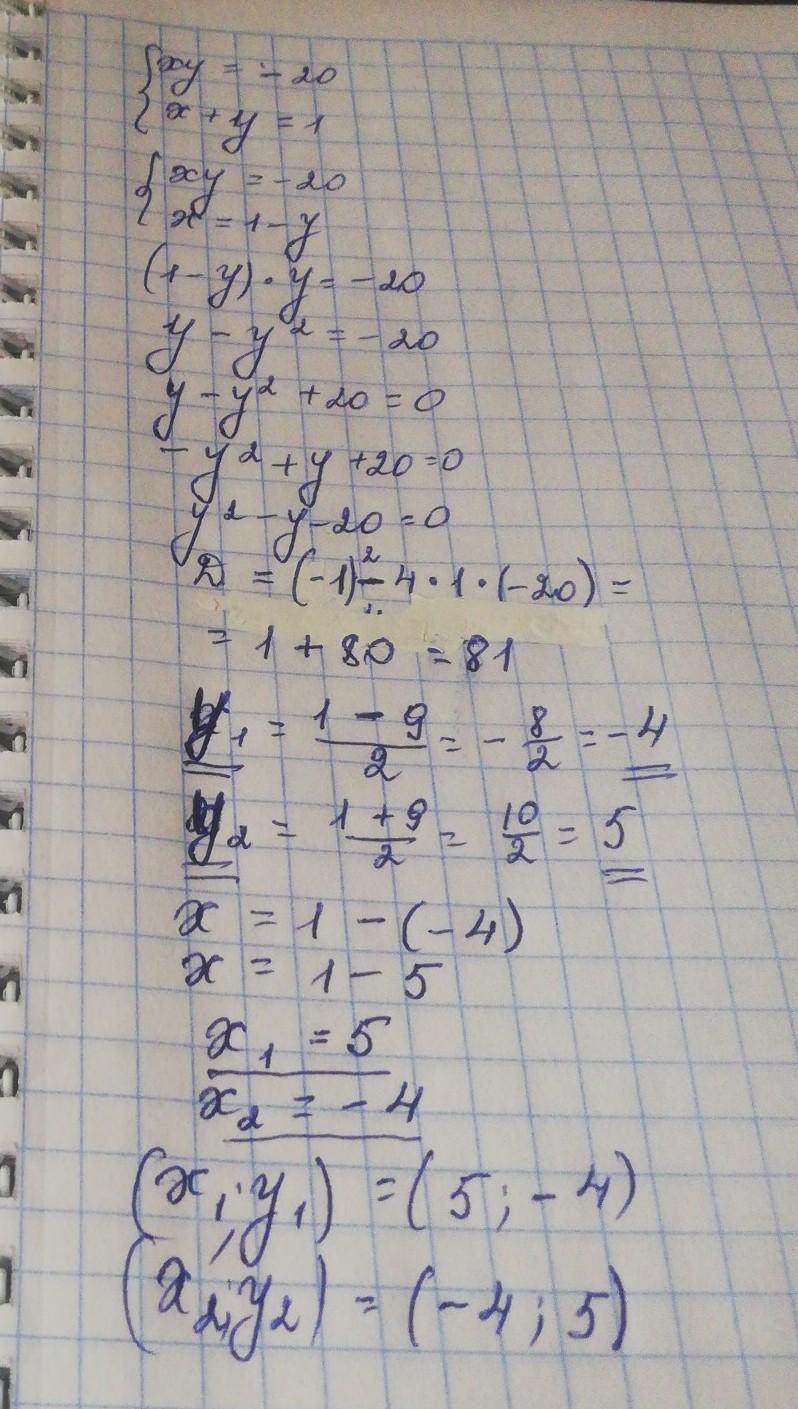 {xy = -20
{x + y = 1
{xy = -20
{x = 1 - y
(1 - y) · y = -20
y - y² = -20
y - y² + 20 = 0
- y² + y + 20 = 0
y² - y - 20 = 0
D = (-1)² - 4 · 1 · (-20) =
= 1 + 80 = 81
y₁ = (1 - 9)/2 = - 8/2 = -4
y₂ = (1 + 9)/2 = 10/2 = 5
x = 1 - (-4)
x = 1 - 5
x₁ = 5
x₂ = -4
(x₁; y₁) = (5; -4)
(x₂; y₂) = (-4; 5)